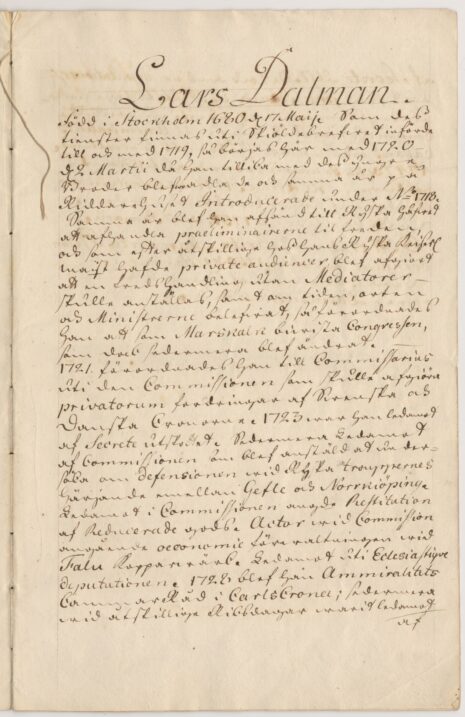 Lars Dalman.
född i Stockholm 1680 d 17 Maij. Som des
tienster finnas uti Sköldebrefvet införde
till och med 1719, så börjas här med 1720.
d Martii då han tillika med des yngre
Broder blef adlade och samma år på
Riddarehuset Introducerade under No 1713.
Samma år blef han afsänd till Ryska Hofvet
att afhandla præliminairerne till freden,
och som efter åtskillige hos Hans Ryska Keiserl
maijt hafde private audiencer blef afgiort
att en fredshandling utan Mediatorer
skulle anställas, samt om tiden, orten
och Ministrerne belefvat, så förordnades
han at som Marskalk bivista Congressen,
som doch sedermera blef ändrat.
1721. förordnades han till Commissarius
uti den Commissionen som skulle afgiöra
privatorum fordringar af Svenska och
Danska Cronorne. 1723 war han ledamot
af Secrete utskottet. Sedermera Ledamot
af Commissionen som blef anstäld at under-
söka om defensionen wid Ryska trouppernes
härjande emellan Gefle och Norrkiöping.
Ledamot i Commissionen angde Restitution
af Reducerade godz. Actor wid Commission
angående oeconomie förvaltningen wid
Falu Kopparwerk. Ledamot uti Ecclesiastique
deputationen. 1728 blef han Ammiralitets
Cammar Råd i CarlsCrona; sedermera
wid åtskillige Riksdagar warit ledamot
af